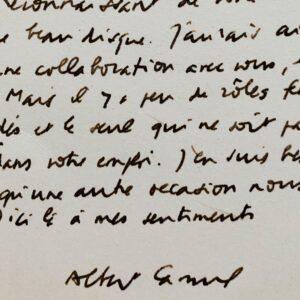 reconnaissant de votre
ce beau disque. J'aurais ai
une collaboration avec vous,
Mais il y a peu de rôles fé
dés et le seul qui ne soit pa
dans votre emploi. J'en suis
qu'une autre occasion nous
D'ici là à mes sentiments
Albert Camus